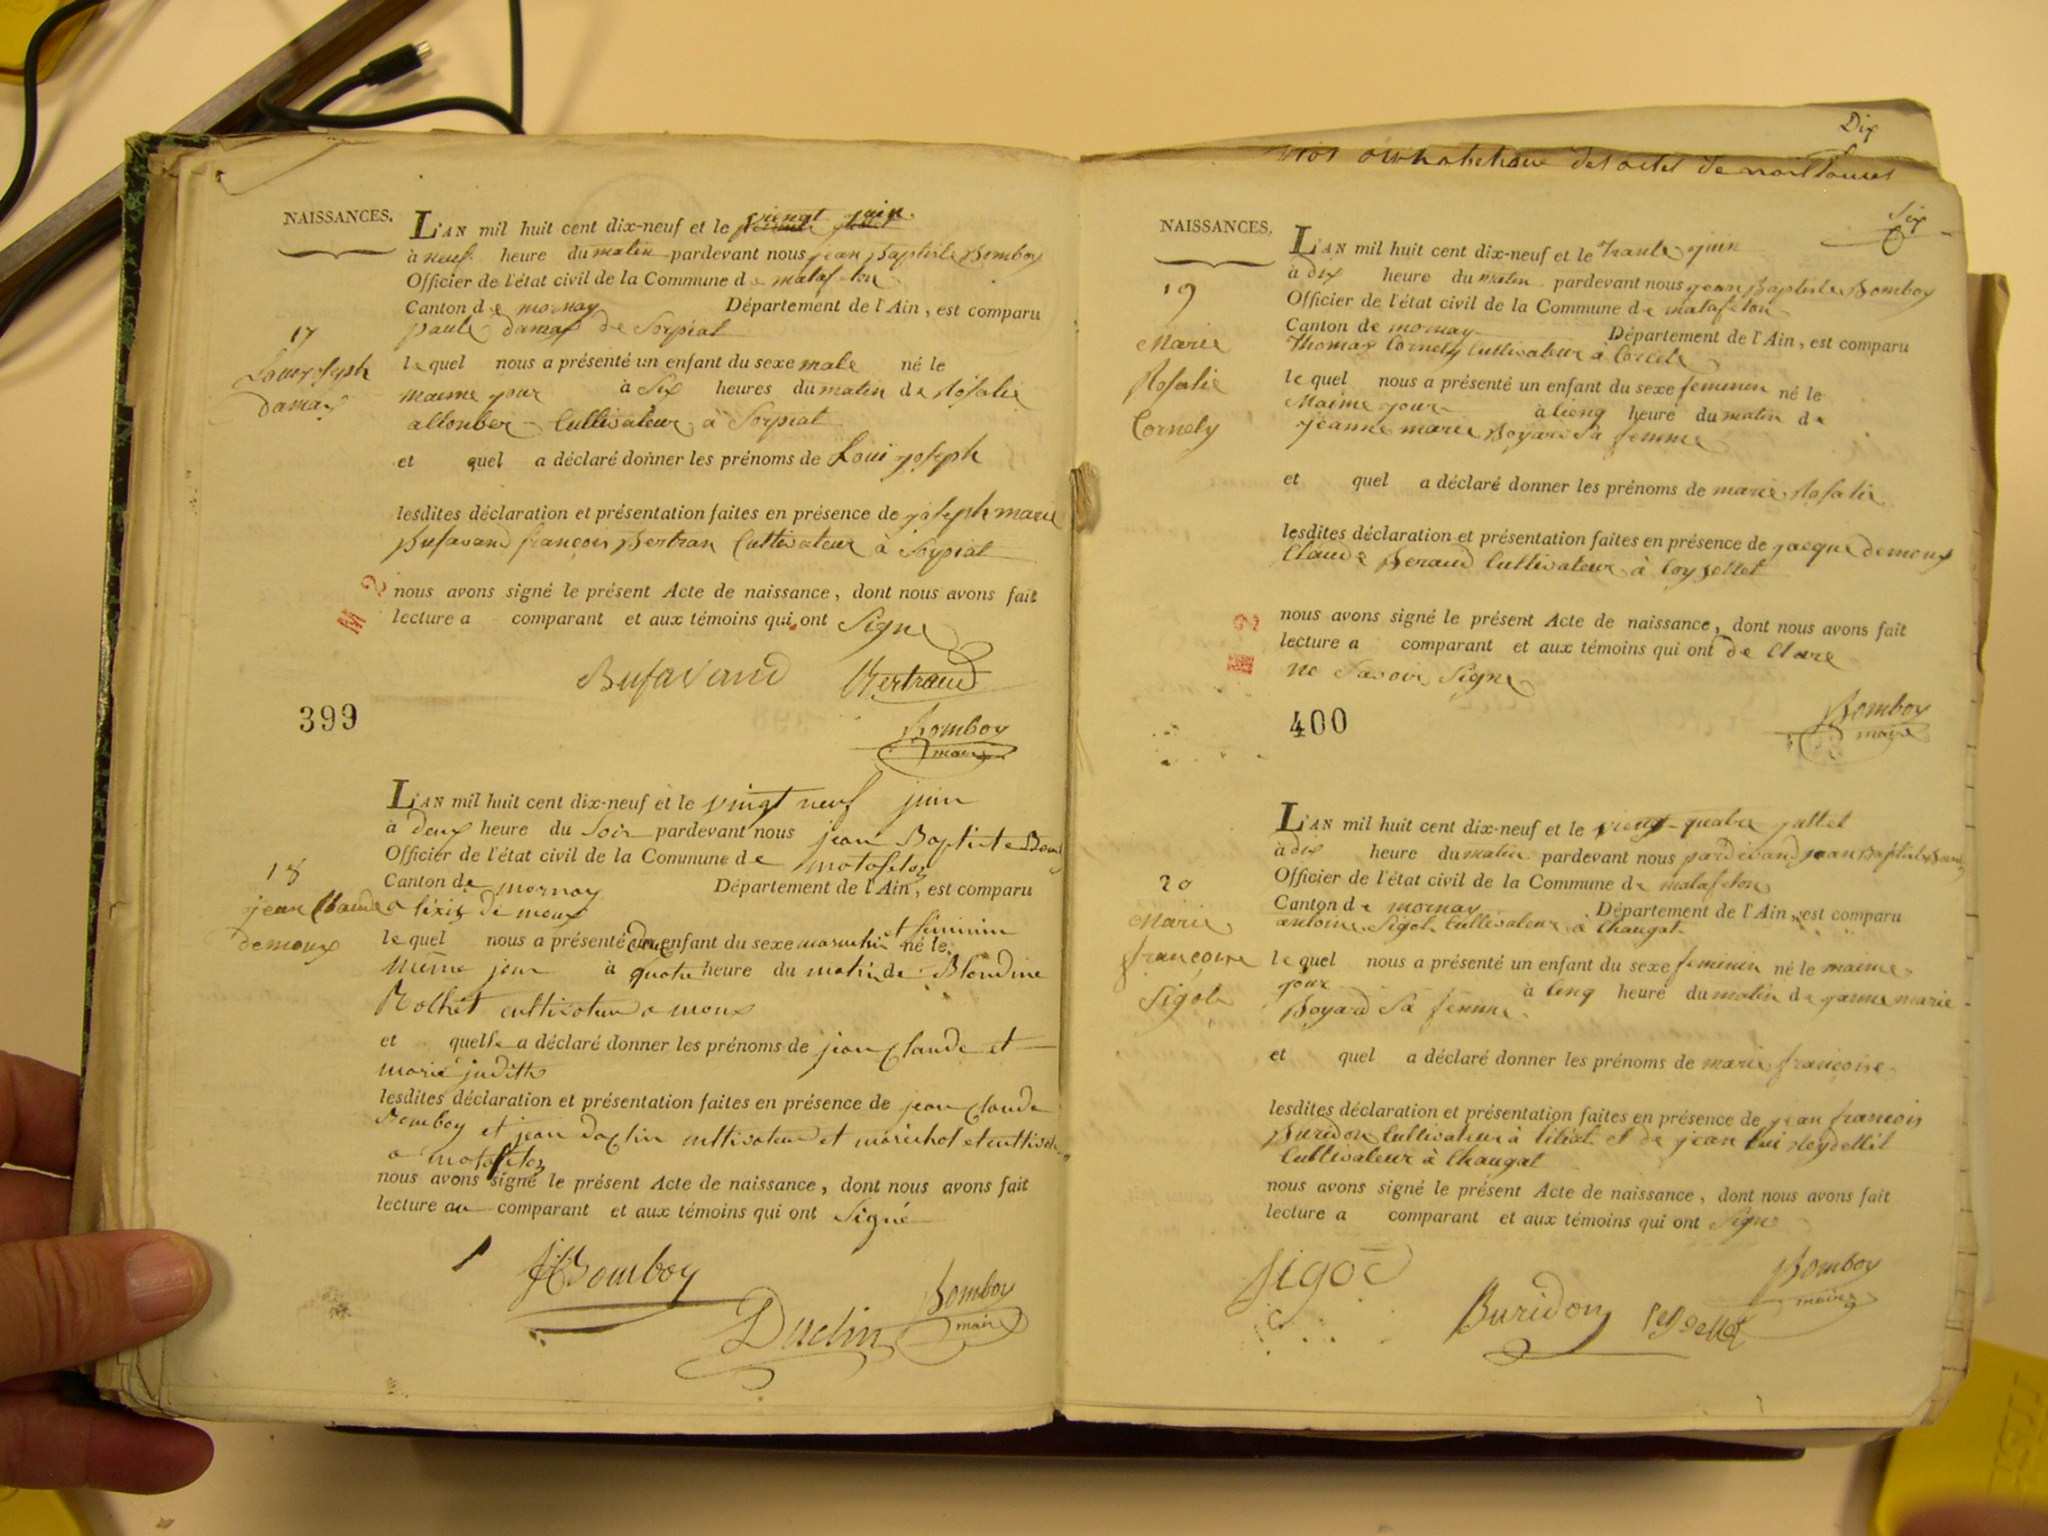 NAISSANCES.
L'AN mil huit cent dix-neuf et le viengt juin.
à neuf heure du matin pardevant nous jean Baptiste Bomboy
Officier de l'état civil de la Commune de matafelon
Canton de mornay Département de l'Ain, est comparu
paule damas de Sorpiat
17
Loui joseph
damas
lequel nous a présenté un enfant du sexe male né le
maime jour à Six heures du matin de Rosalie
Cultivateur à Sorpiat
et quel a déclaré donner les prénoms de Loui joseph
lesdites déclaration et présentation faites en présence de joseph marie
Bufavand françois Bertran Cultivateur à Sorpiat
nous avons signé le présent Acte de naissance, dont nous avons fait
lecture a comparant et aux témoins qui ont Signe
Bufavand Bertrand
399
Bomboy
maire
L'AN mil huit cent dix-neuf et le vingt neuf juin
à deux heure du Soir pardevant nous jean Baptiste Bom
Officier de l'état civil de la Commune de matafelon
Canton de mornay Département de l'Ain, est comparu
18
jean Claude
demoux
et féminin
lequel nous a présenté deux enfant du sexe masculin né le
même jour à quatre heure du matin de Blondine
cultivateur a
et quelle a déclaré donner les prénoms de jean Claude et
marie judith
lesdites déclaration et présentation faites en présence de jean Claude
Bomboy et jean cultivateur et maréchal et
a matafelon
nous avons signé le présent Acte de naissance, dont nous avons fait
lecture au comparant et aux témoins qui ont Signé
JC Bomboy
Duclin
Bomboy
maire
Dix
des actes de naissances
Six
NAISSANCES.
L'AN mil huit cent dix-neuf et le trante juin
à dix heure du matin pardevant nous jean Baptiste Bomboy
Officier de l'état civil de la Commune de matafelon
Canton de mornay Département de l'Ain, est comparu
Thomas Cornely Cultivateur à
19
Marie
Rosalie
Cornely
lequel nous a présenté un enfant du sexe feminen né le
Maime jour à Cienq heure du matin de
jeanne marie Boyard Sa femme
et quel a déclaré donner les prénoms de marie Rosalie
lesdites déclaration et présentation faites en présence de jacque demoux
Claude Beraud Cultivateur à
nous avons signé le présent Acte de naissance, dont nous avons fait
lecture a comparant et aux témoins qui ont de Clare
ne Savoir Signe
400
Bomboy
maire
L'AN mil huit cent dix-neuf et le viengt-quatre jullet
à dix heure du matin pardevant nous pardevand jean Baptiste
Officier de l'état civil de la Commune de matafelon
Canton de mornay Département de l'Ain, est comparu
antoine Sigot Cultivateur à Chaugat
20
Marie
françoise
lequel nous a présenté un enfant du sexe feminin né le maime
jour à Cinq heure du matin de janne marie
Boyard Sa femme
et quel a déclaré donner les prénoms de marie françoise
lesdites déclaration et présentation faites en présence de jean francois
Buridon Cultivateur à et de jean Lui Reydellet
Cultivateur à Chaugat
nous avons signé le présent Acte de naissance, dont nous avons fait
lecture a comparant et aux témoins qui ont Signe
Sigot
Buridon
Bomboy
maire